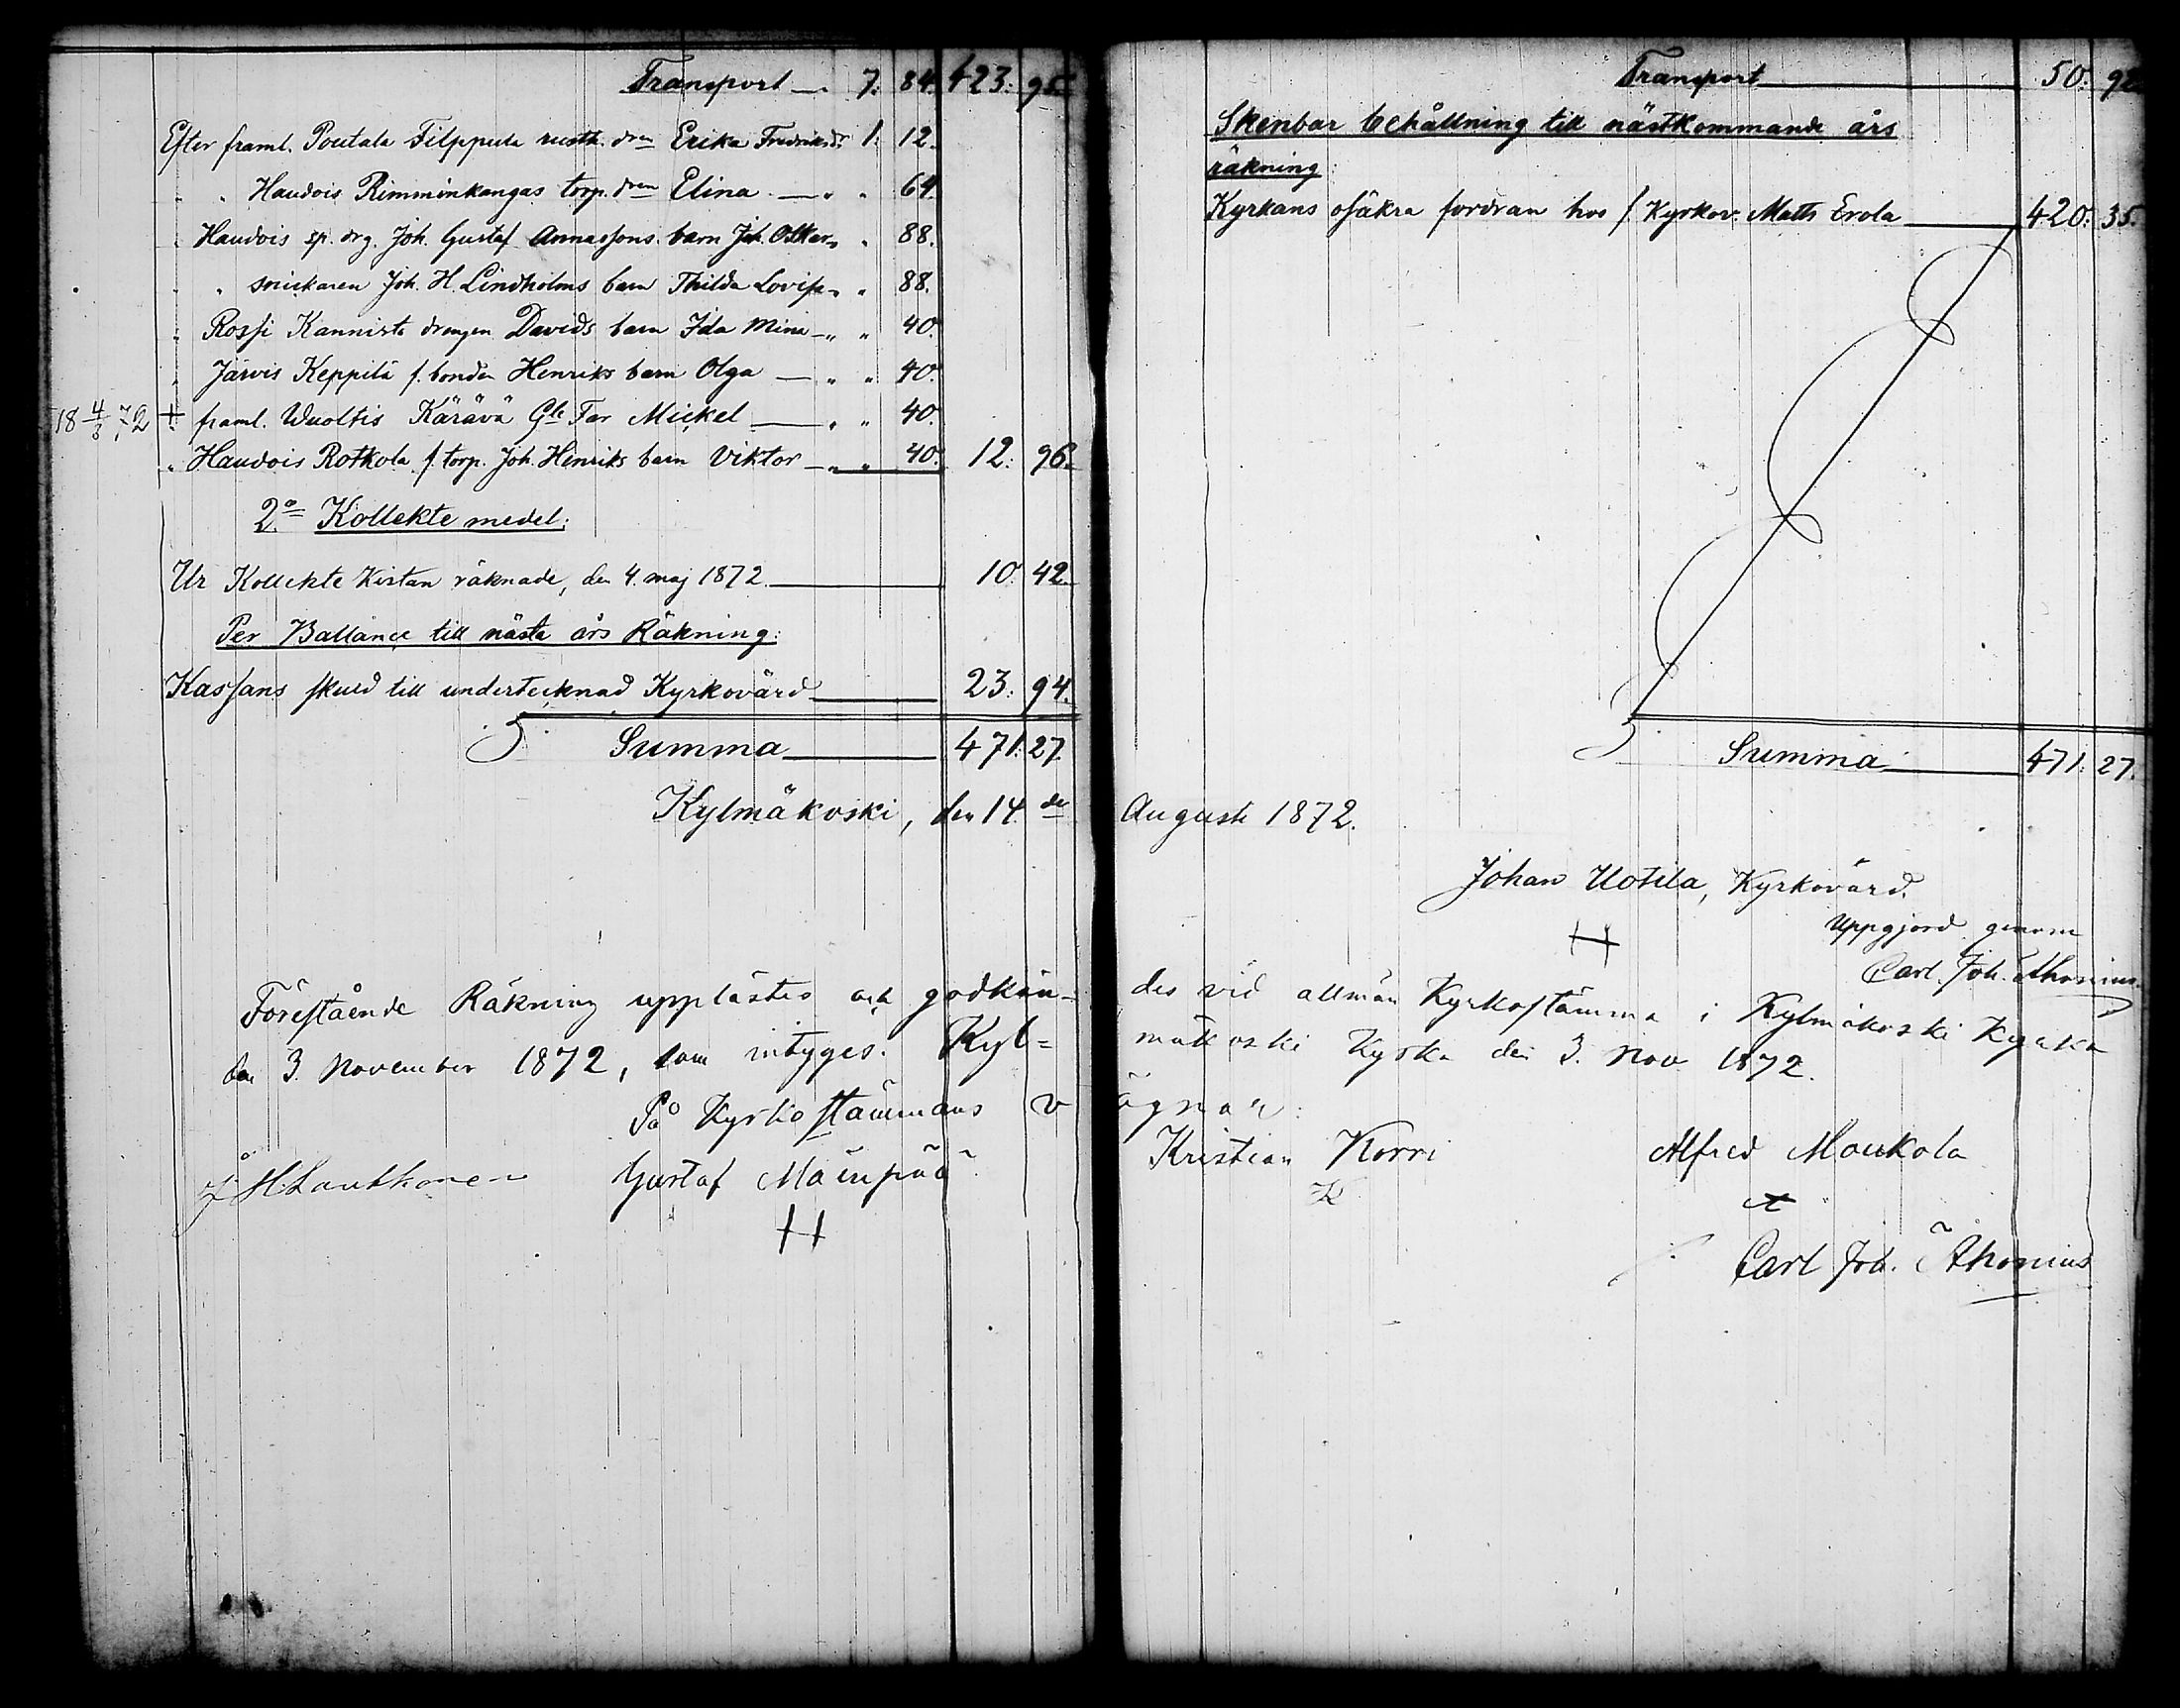 Transport 7: 84. 423: 95.
Efter framl. Poutala Filppula rusth. dren Erika Fredriksdr 1: 12.
" " Haudois Rimminkangas torp. dren Elina — " " 64.
" Haudois sp. drg. Joh. Gustaf Annassons barn Joh. Oskar " 88.
" " snickaren Joh. H. Lindholms barn Thilda Lovisa " 88.
" Rossi Kannisto drengen Davids barn Ida Mina — " " 40.
" Järvis Keppilä f. bonden Henriks barn Olga — " " 40.
18 4/3 72 + framl. Wuoltis Kärävä Gle Far Mickel — " " 40.
" Haudois Rotkola f. torp. Joh. Henriks barn Viktor — " " 40. 12: 96.
2o Kollekte medel:
Ur Kollekte Kistan räknade, den 4. maj 1872. 10. 42.
Per Ballance till nästa års Räkning:
Kassans skuld till undertecknad Kyrkovärd 23: 94.
Summa 471: 27.
Kylmäkoski, den 14de
Förestående Räkning upplästes och godkän-
den 3. November 1872, som intyges. Kyl=
På Kyrkostämmans v
Gustaf Mäenpää
H
Transport 50: 92
Skenbar behållning till nästkommande års
räkning:
Kyrkans osäkra fordran hos f. Kyrkov. Matts Erola 420: 35.
Summa 471: 27.
Augusti 1872.
Johan Uotila, Kyrkovärd.
H
Uppgjord genom
Carl Joh. Ahonius.
des vid allmän Kyrkostämma i Kylmäkoski Kyrka
mäkoski Kyrka den 3. Nov. 1872.
ägnar:
Kristian Korri Alfred Moukola
K A
Carl Joh. Ahonius